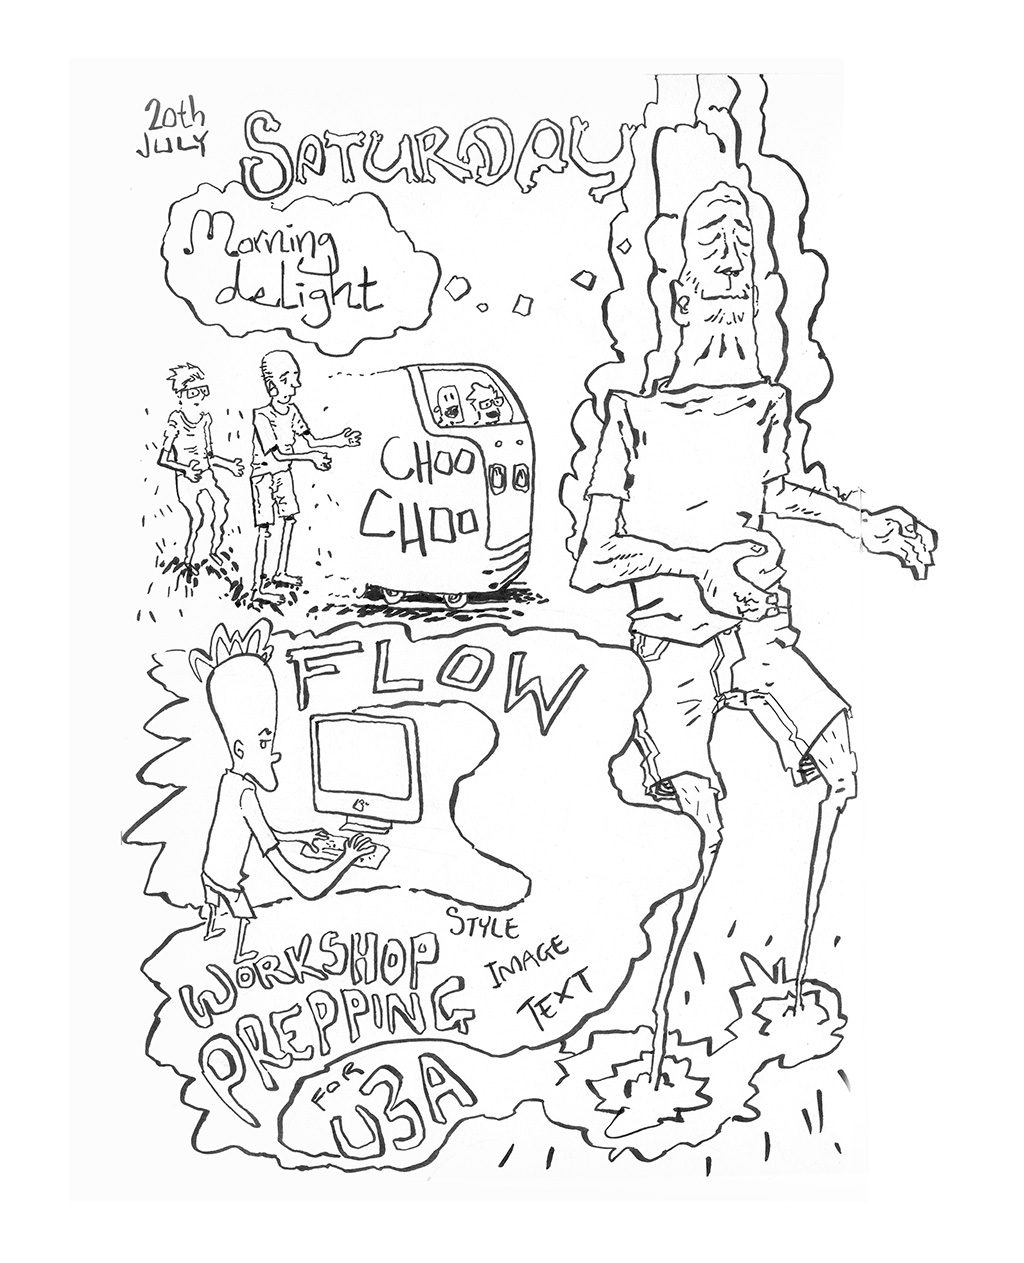 20th
JULY
SATURDAY
Morning
delight
CHOO
CHOO
FLOW
STYLE
IMAGE
TEXT
WORKSHOP
PREPPING
FOR
U3A